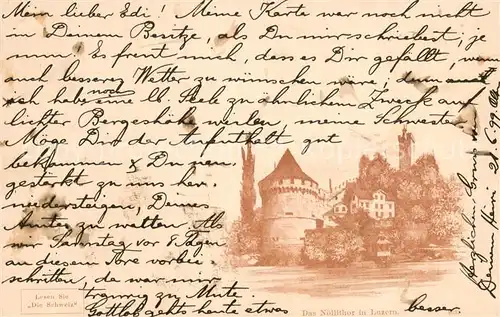 Mein lieber Edi! Meine Karte war noch nicht
in Deinem Besitze, als Du mir schriebest, je
nun! Es freut mich, dass es Dir gefällt, wenn
auch besseres Wetter zu wünschen wäre, denn auch
ich habe eine lb. Seele zu ähnlichem Zweck auf
noch
lichter Bergeshöhe weilen, meine Schwester.
Möge Dir der Aufenthalt gut
bekommen & Du neu
gestärkt zu uns her
niedersteigen, Deines
Amtes zu walten. Als
wir Samstag vor 8 Tagen
an diesem Tore vorbei
schritten, da war mir
traurig zu Mute.
Gottlob gehts heute etwas besser.
Herzlichen Gruss von
Deinem
Lesen Sie
"Die Schweiz"
Das Nöllithor in Luzern.